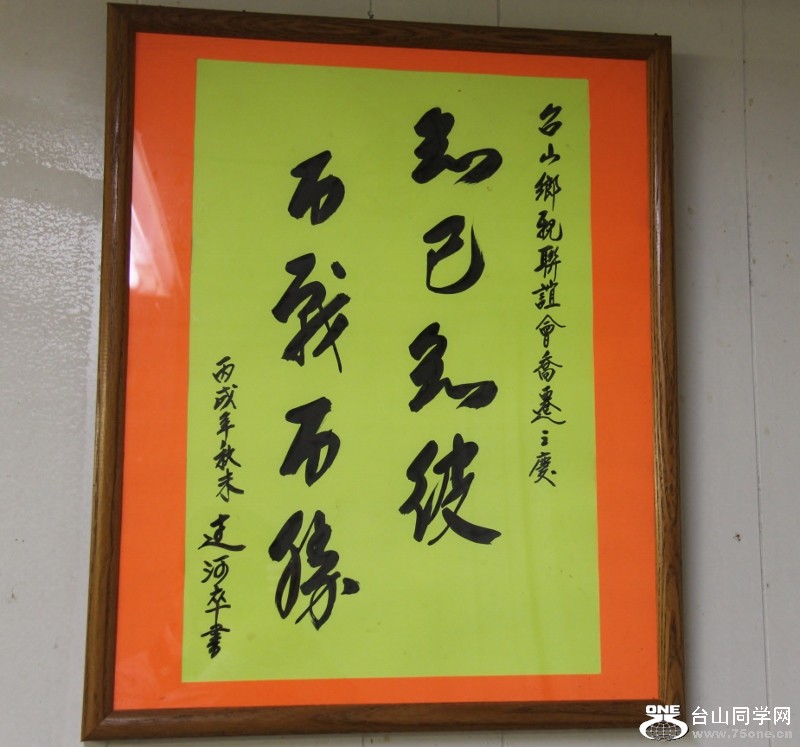 台山鄉親聯誼會喬遷之慶
知己知彼
百戰百勝
丙戌年秋末 河卒書
ONE
台山同学网
www.75one.cn